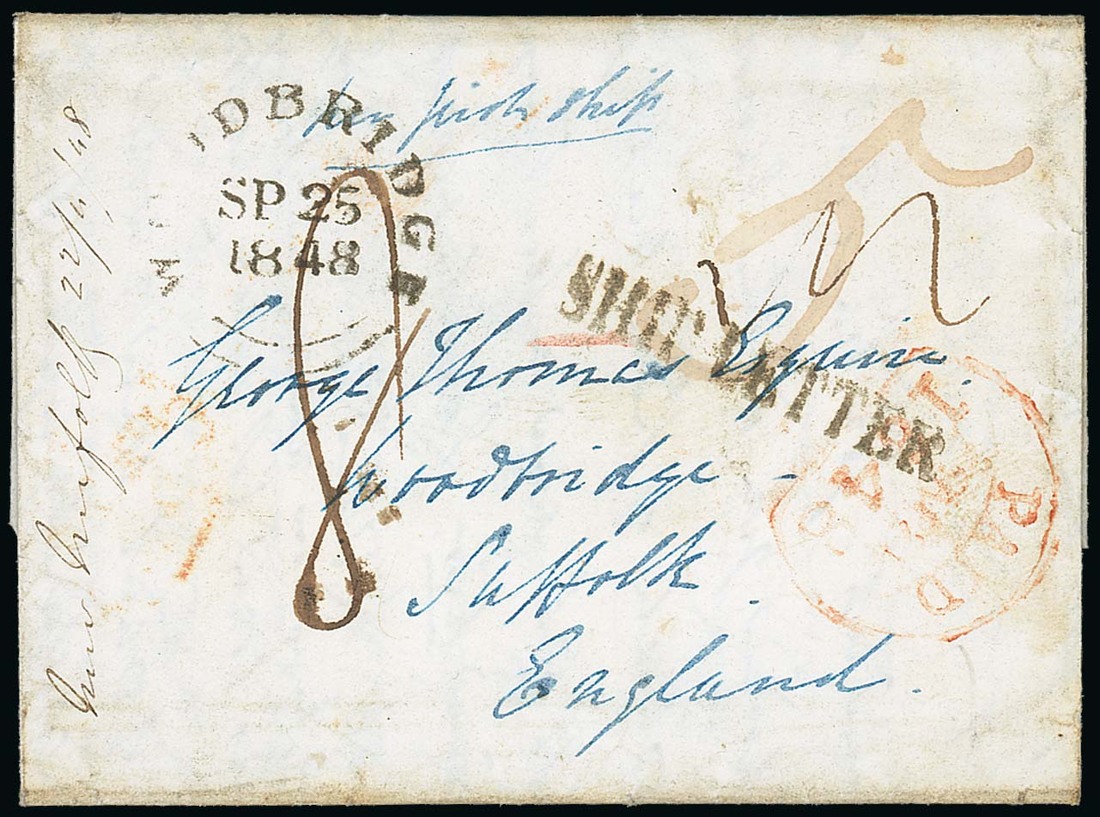 per first ship
WOODBRIDGE
SP 25
1848
SHIP LETTER
George Thomas Esquire.
Woodbridge -
Suffolk.
England.
PAID
22/4/48